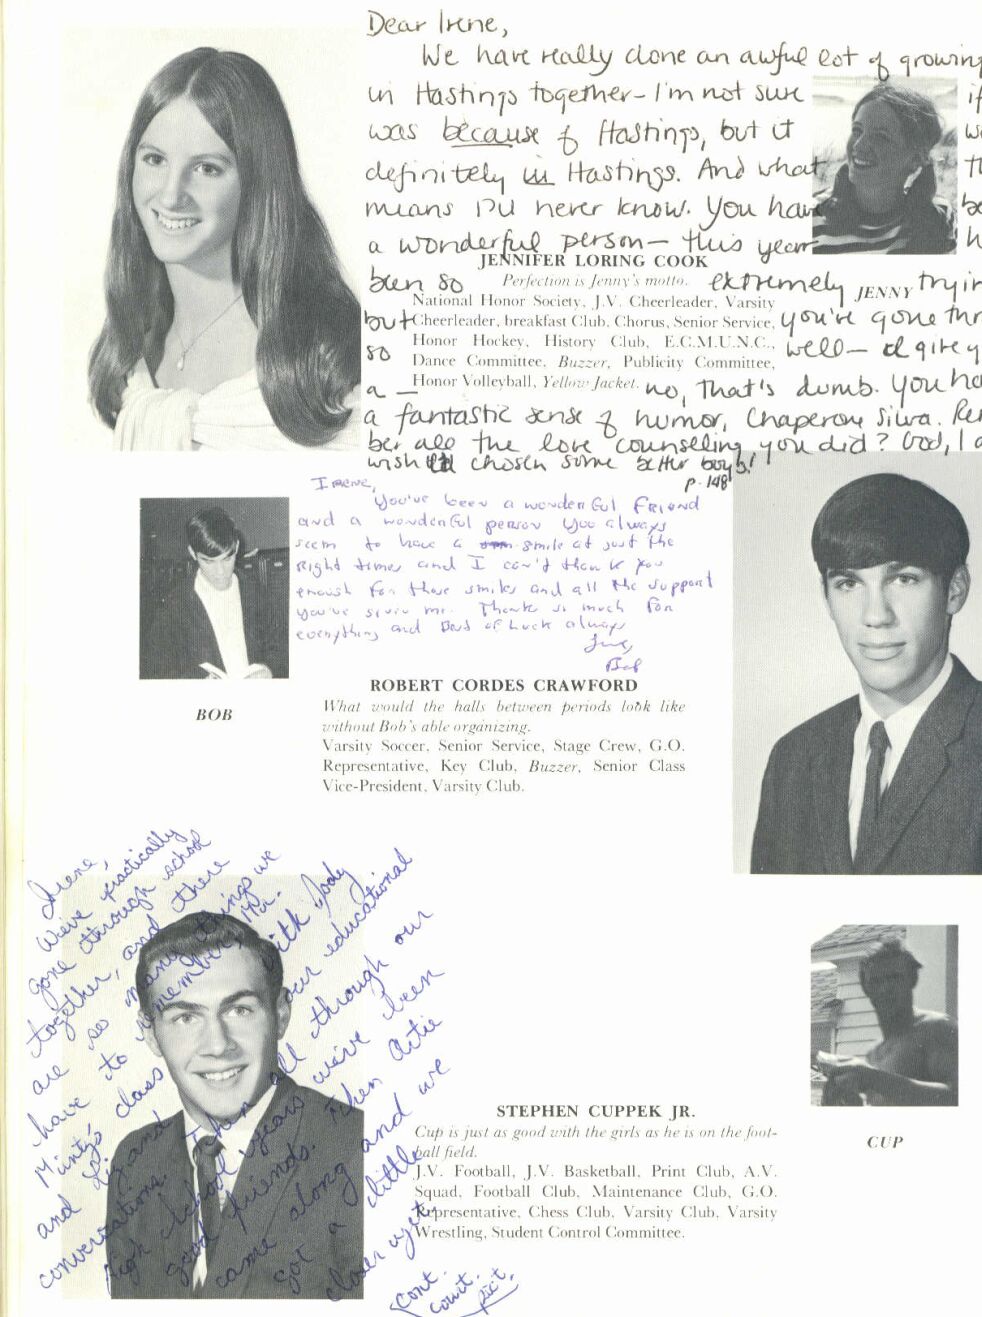 Dear Irene,
We have really done an awful lot of growing
in Hastings together - I'm not sure if
was because of Hastings, but it
definitely in Hastings. And what
means I'll never know. You have
a wonderful person - this year
been so extremely
but you've gone
so well - I give
a - no, that's dumb. You
a fantastic sense of humor, Chaperone Silva.
ber all the love counseling you did? God, I
wish I'd chosen some better boys!
p. 148
JENNIFER LORING COOK
Perfection is Jenny's motto.
National Honor Society, J.V. Cheerleader, Varsity
Cheerleader, breakfast Club, Chorus, Senior Service,
Honor Hockey, History Club, E.C.M.U.N.C.,
Dance Committee, Buzzer, Publicity Committee,
Honor Volleyball, Yellow Jacket.
JENNY
Irene,
You've been a wonderful friend
and a wonderful person you always
seem to have a smile at just the
right times and I can't thank you
enough for those smiles and all the support
you've given me. Thanks so much for
everything and Best of luck always
Love,
Bob
BOB
ROBERT CORDES CRAWFORD
What would the halls between periods look like
without Bob's able organizing.
Varsity Soccer, Senior Service, Stage Crew, G.O.
Representative, Key Club, Buzzer, Senior Class
Vice-President, Varsity Club.
Irene,
We've practically
gone through school
together, and there
are so many things we
have to remember, Mr.
Minty's class with Jody
and Liz and our educational
conversations. Then all through our
high school years we've been
good friends. Then Artie
came along and we
got a little
closer yet.
cont.
court.
pict.
STEPHEN CUPPEK JR.
Cup is just as good with the girls as he is on the foot-
ball field.
J.V. Football, J.V. Basketball, Print Club, A.V.
Squad, Football Club, Maintenance Club, G.O.
Representative, Chess Club, Varsity Club, Varsity
Wrestling, Student Control Committee.
CUP